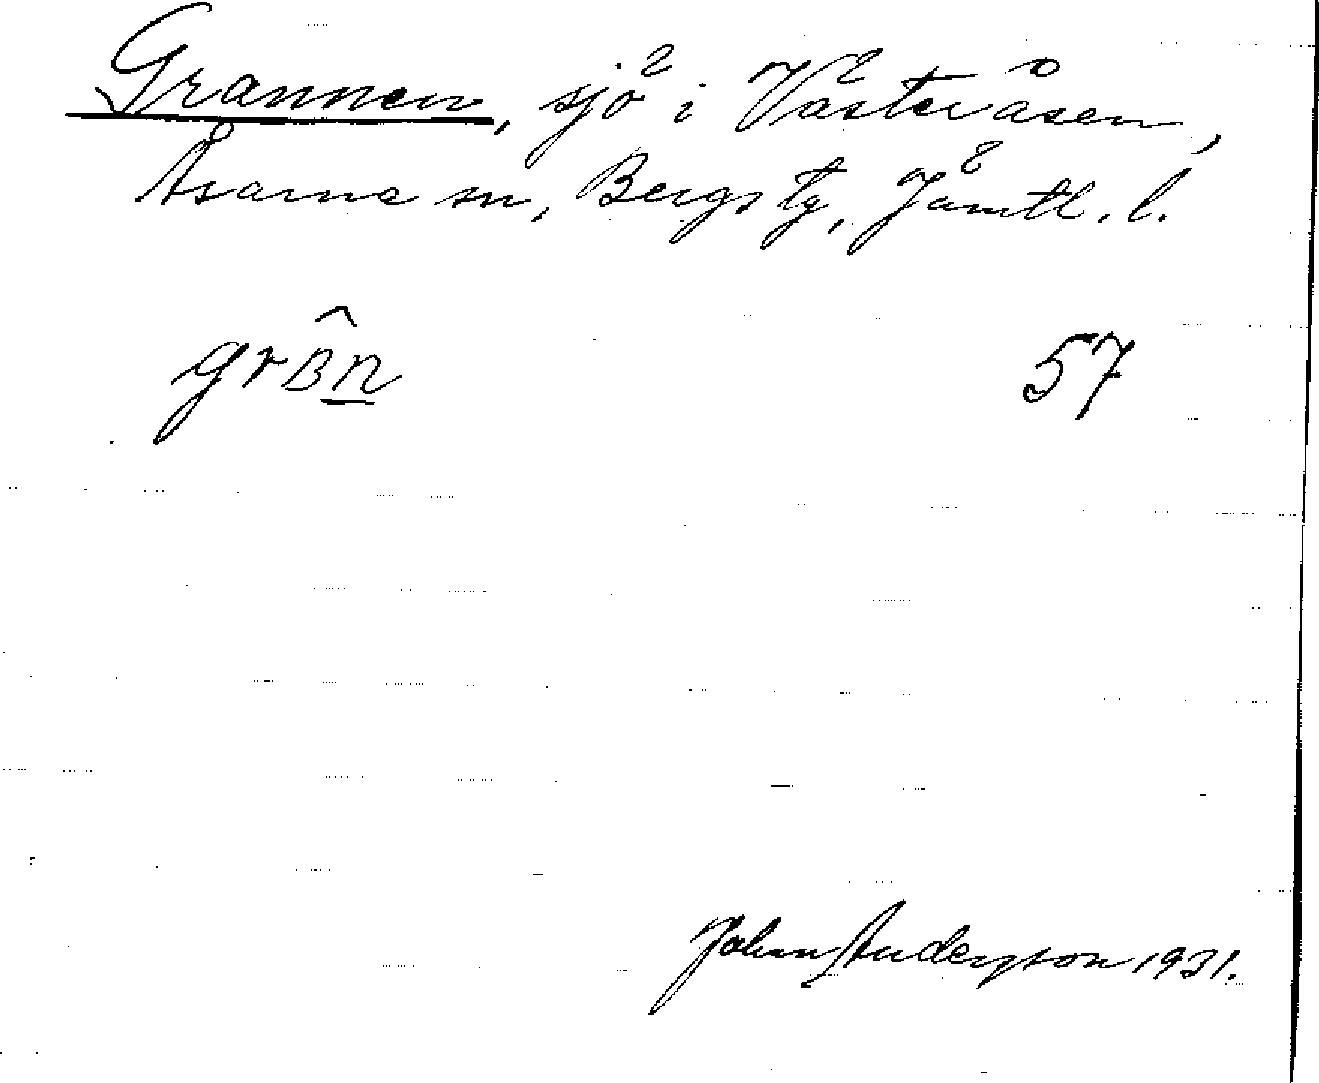 Grannen, sjö i Västeråsen,
Åsarna sn, Bergs tg, Jämtl. l.
grʙn̲̂ 57
John Anderson 1931.